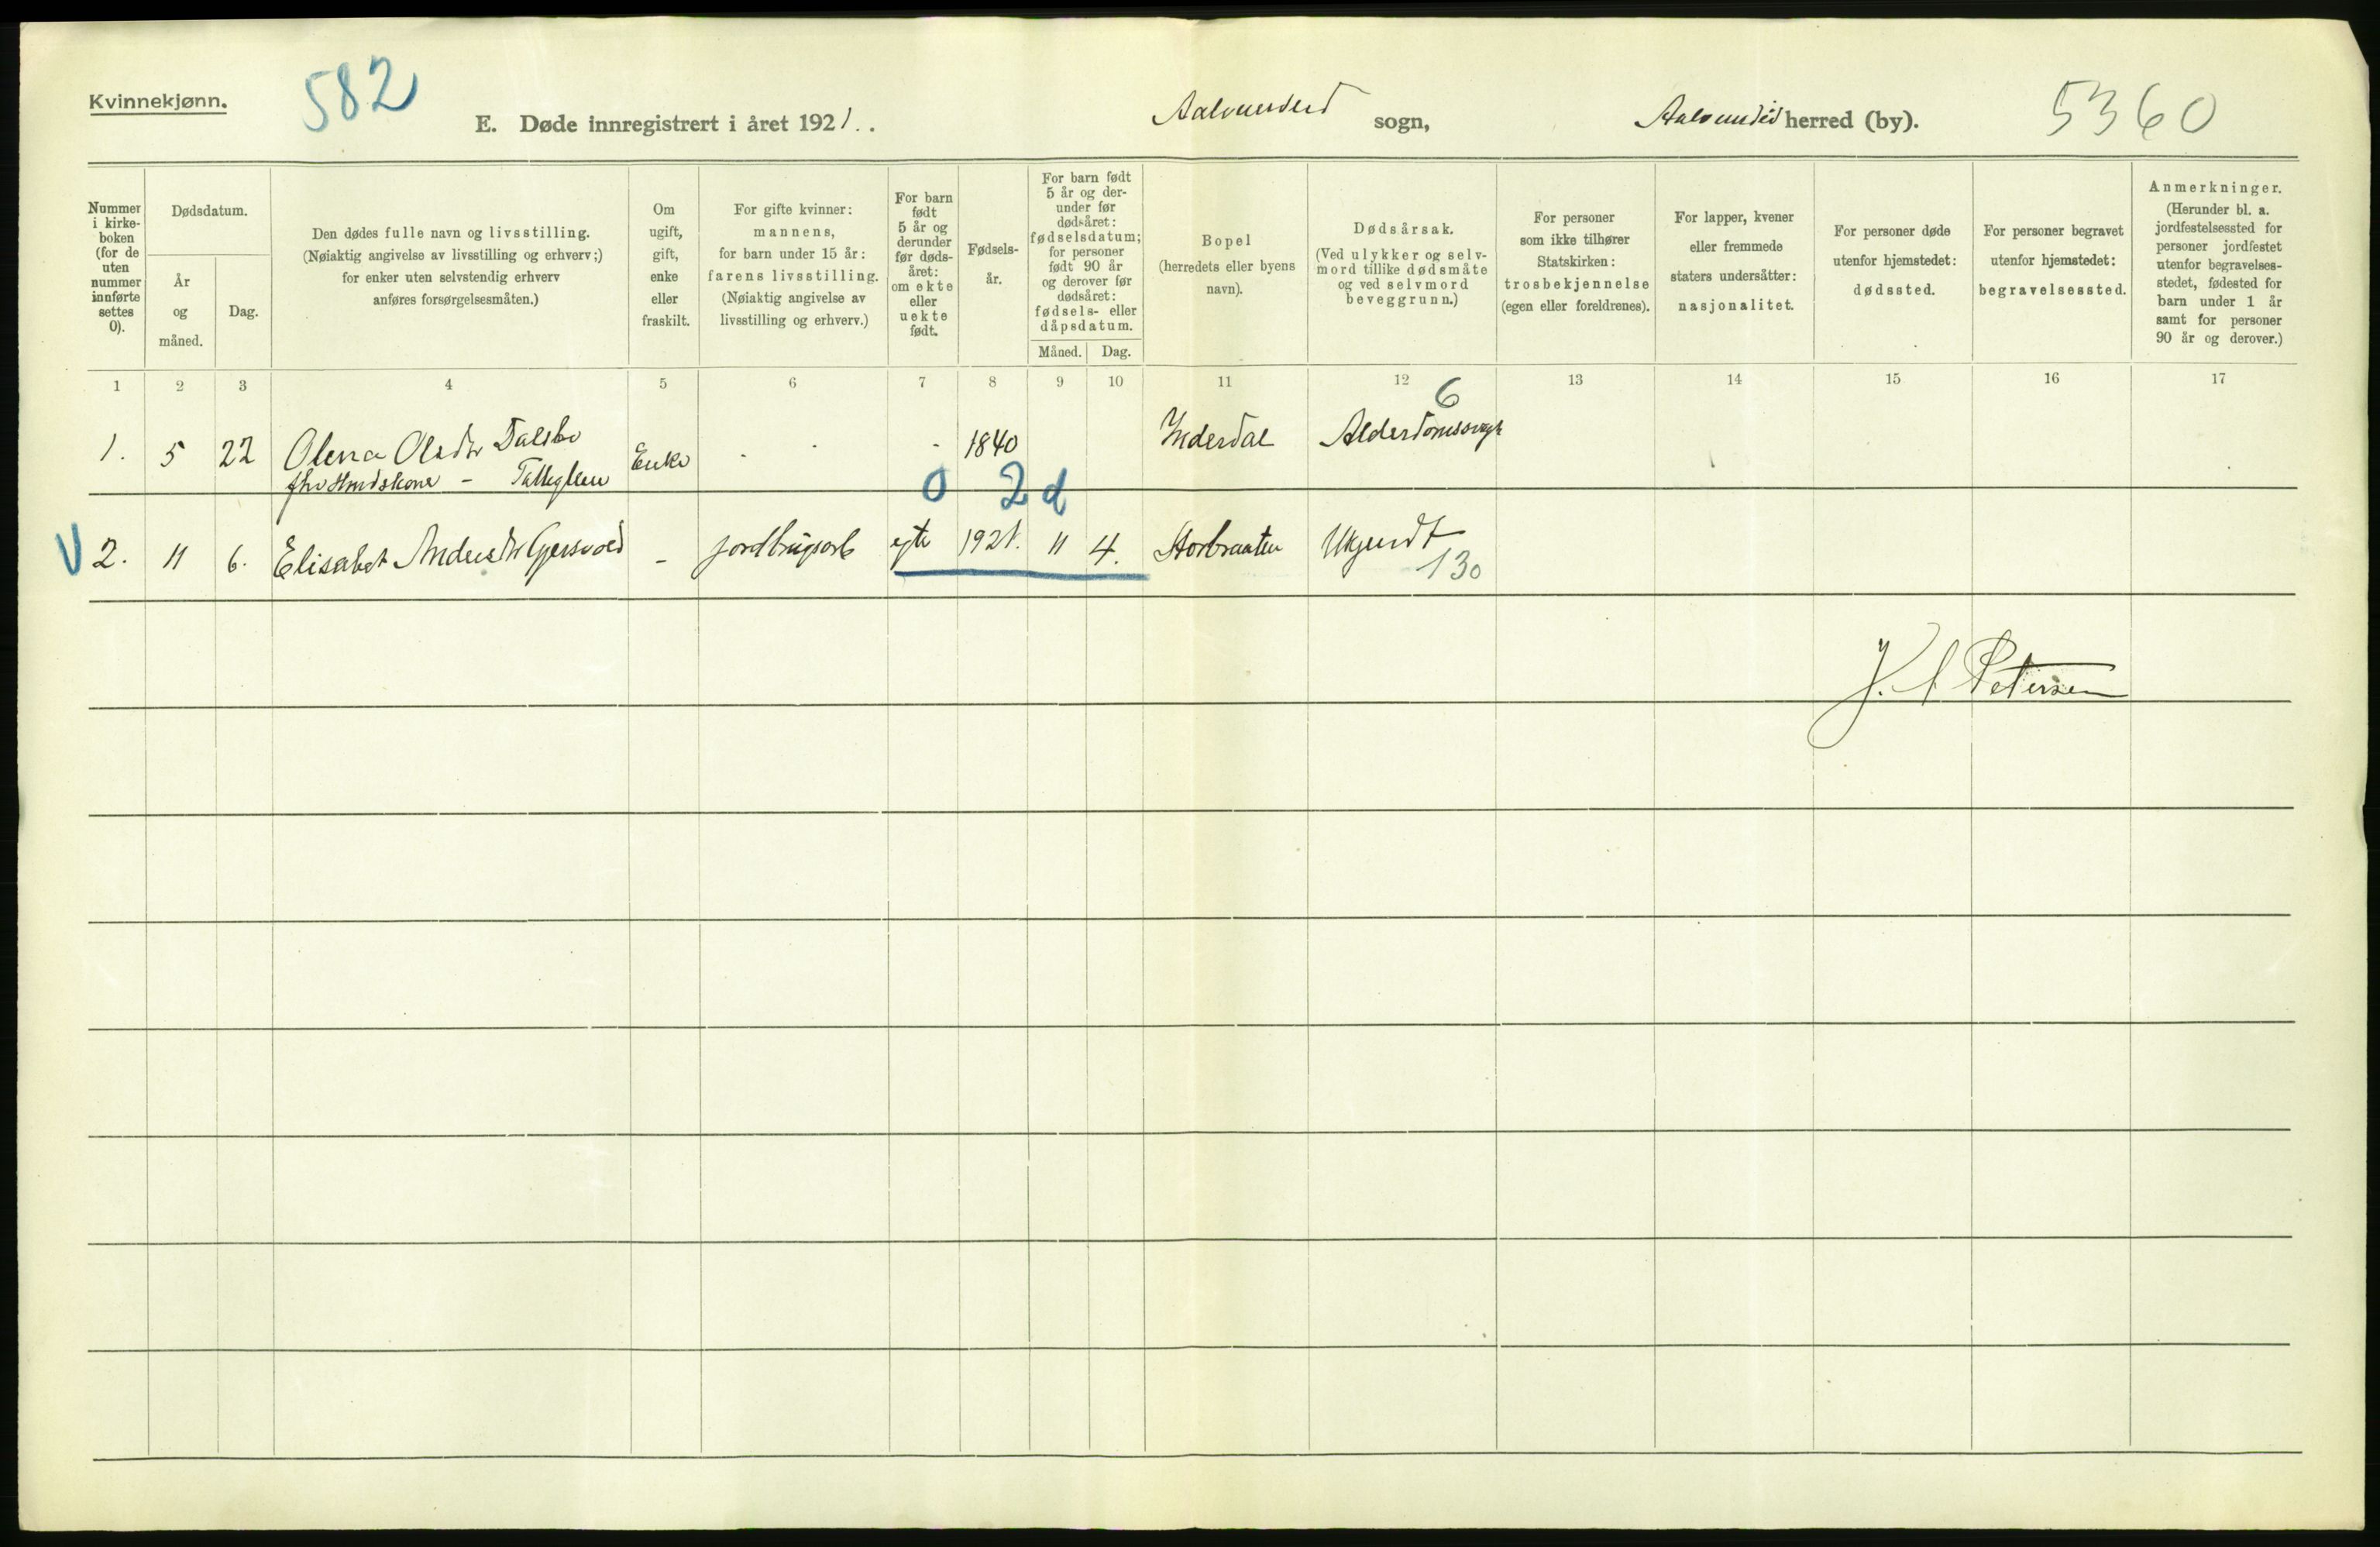 Kvinnekjønn.
582
E. Døde innregistrert i året 1921. .
Aalvundeid sogn,
Aalvundeid herred (by).
5360
Nummer i kirke-boken (for de uten nummer innførte settes 0).
Dødsdatum.
År og måned.
Dag.
Den dødes fulle navn og livsstilling.
(Nøiaktig angivelse av livsstilling og erhverv;)
for enker uten selvstendig erhverv
anføres forsørgelsesmåten.)
Om ugift, gift, enke eller fraskilt.
For gifte kvinner:
mannens,
for barn under 15 år:
farens livsstilling.
(Nøiaktig angivelse av
livsstilling og erhverv.)
For barn født 5 år og derunder før døds-året: om ekte eller uekte født.
Fødsels-år.
For barn født 5 år og der-under før dødsåret: fødselsdatum; for personer født 90 år og derover før dødsåret: fødsels- eller dåpsdatum.
Måned.
Dag.
Bopel
(herredets eller byens
navn).
Dødsårsak.
(Ved ulykker og selv-
mord tillike dødsmåte
og ved selvmord
beveggrunn.)
For personer
som ikke tilhører
Statskirken:
trosbekjennelse
(egen eller foreldrenes).
For lapper, kvener
eller fremmede
staters undersåtter:
nasjonalitet.
For personer døde
utenfor hjemstedet:
dødssted.
For personer begravet
utenfor hjemstedet:
begravelsessted.
Anmerkninger.
(Herunder bl. a.
jordfestelsessted for
personer jordfestet
utenfor begravelses-
stedet, fødested for
barn under 1 år
samt for personer
90 år og derover.)
1 2 3 4 5 6 7 8 9 10 11 12 13 14 15 16 17
6
1. 5 22 Olena Olsdtr Dalsbo Enke - - - 1840 Inderdal
0 2 d
V 2. 11 6. Elisabet Andersdtr Gjersvold - jordbrugsarb egte 1921. 11 4. Storbraaten Ukjendt
130
Petersen